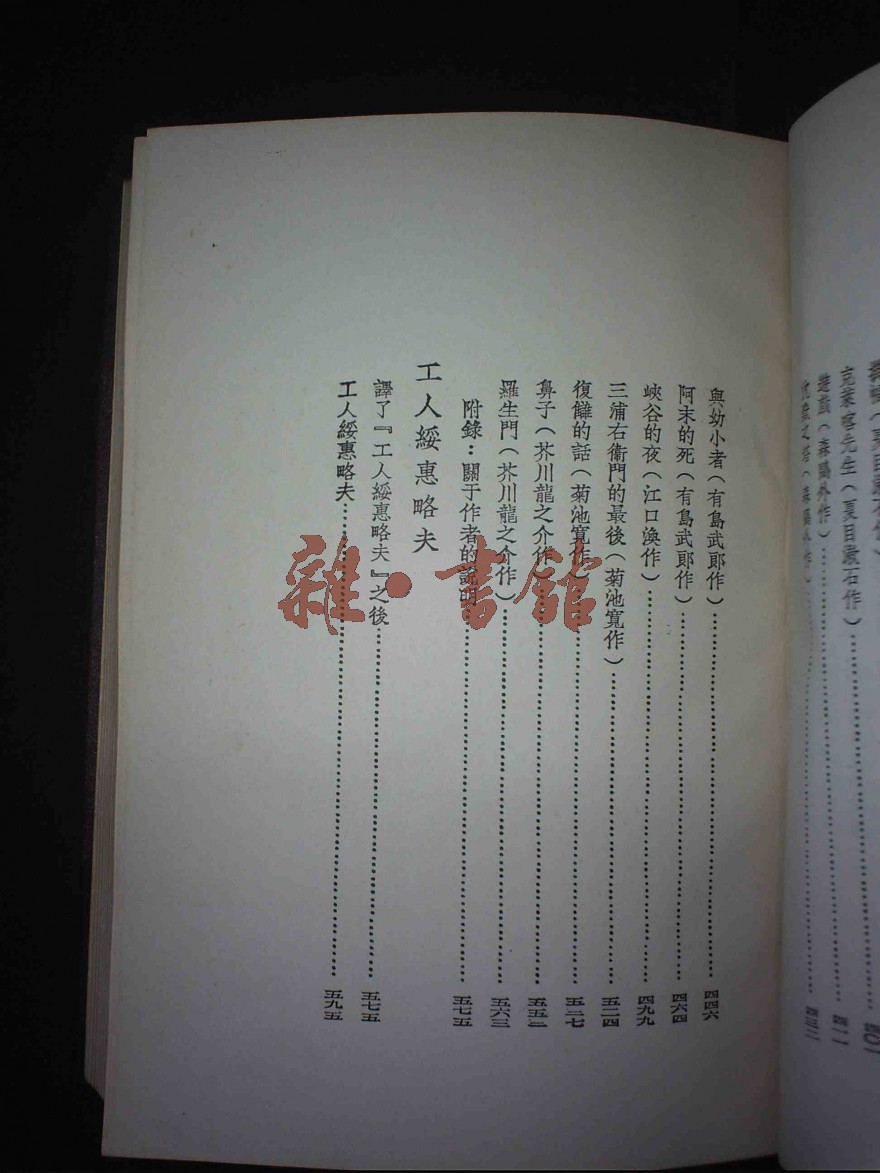 克萊喀先生（夏目漱石作）
遊戲（森鷗外作）
與幼小者（有島武郎作）
四四六
阿末的死（有島武郎作）
四六四
峽谷的夜（江口渙作）
四九九
三浦右衞門的最後（菊池寬作）
五二四
復讎的話（菊池寬作）
鼻子（芥川龍之介作）
羅生門（芥川龍之介作）
五六三
附錄：關于作者的說明
五七五
工人綏惠略夫
譯了『工人綏惠略夫』之後
五七五
工人綏惠略夫
五九五
雜·書館